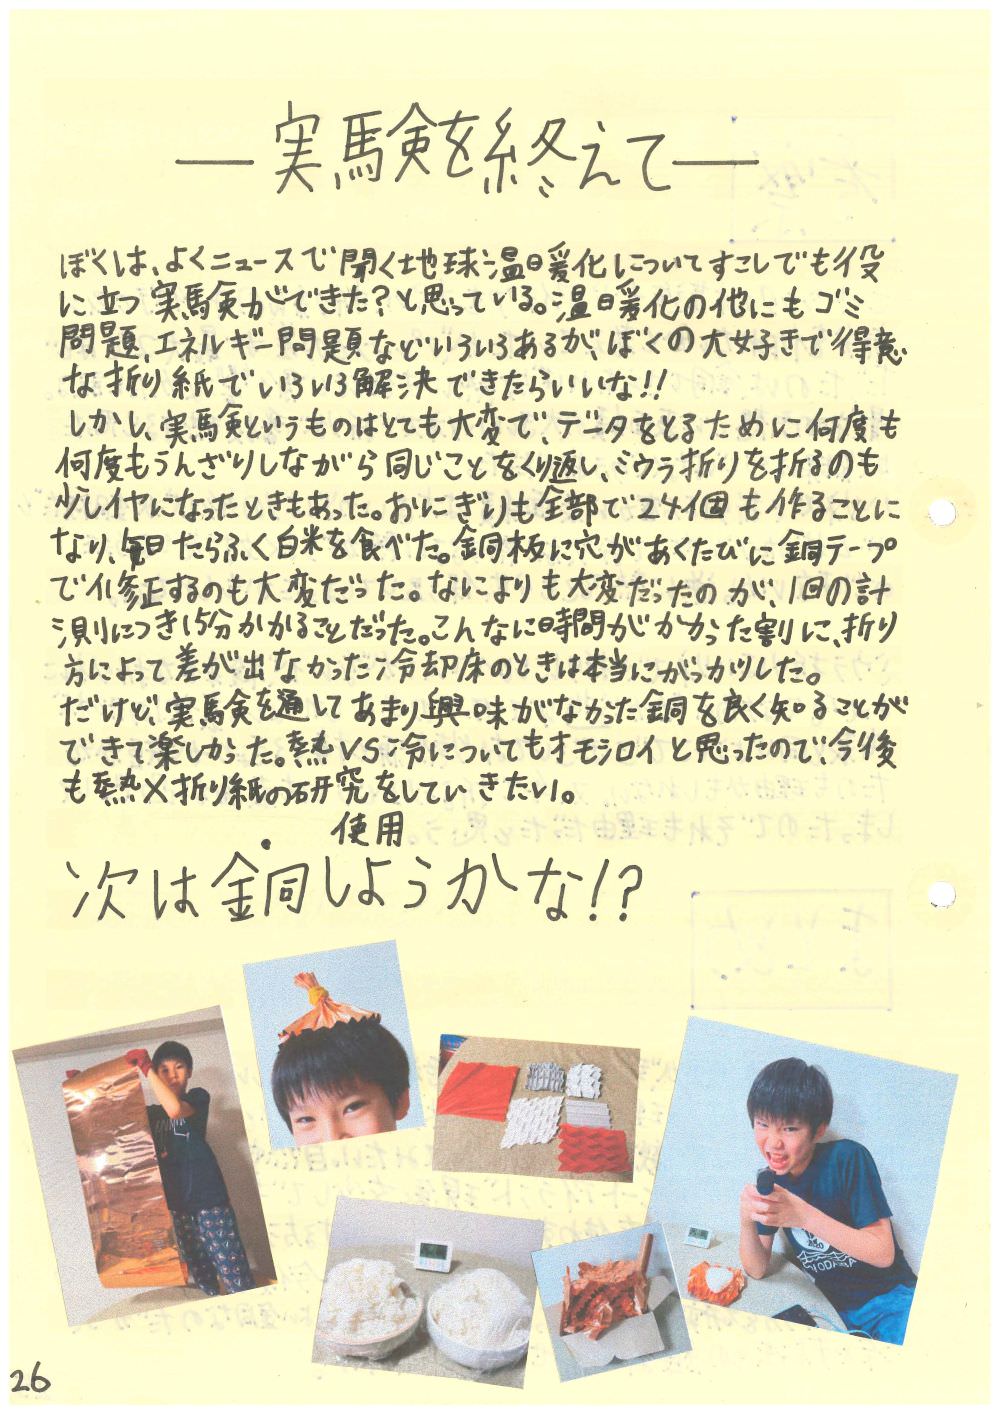 ―実験を終えて―
ぼくは、よくニュースで聞く地球温暖化についてすこしでも役
に立つ実験ができた？と思っている。温暖化の他にもゴミ
問題、エネルギー問題などいろいろあるが、ぼくの大好きで得意
な折り紙でいろいろ解決できたらいいな!!
しかし、実験というものはとても大変で、データをとるために何度も
何度もうんざりしながら同じことをくり返し、ミウラ折りを折るのも
少しイヤになったときもあった。おにぎりも全部で24個も作ることに
なり、毎日たらふく白米を食べた。銅板に穴があくたびに銅テープ
で修正するのも大変だった。なによりも大変だったのが、1回の計
測につき15分かかることだった。こんなに時間がかかった割に、折り
方によって差が出なかった冷却床のときは本当にがっかりした。
だけど、実験を通してあまり興味がなかった銅を良く知ることが
できて楽しかった。熱VS冷についてもオモシロイと思ったので、今後
も熱×折り紙の研究をしていきたい。
使用
次は銅しようかな!?
26